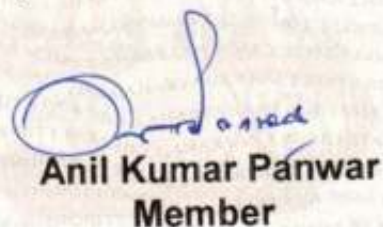 Anil Kumar Panwar
Member